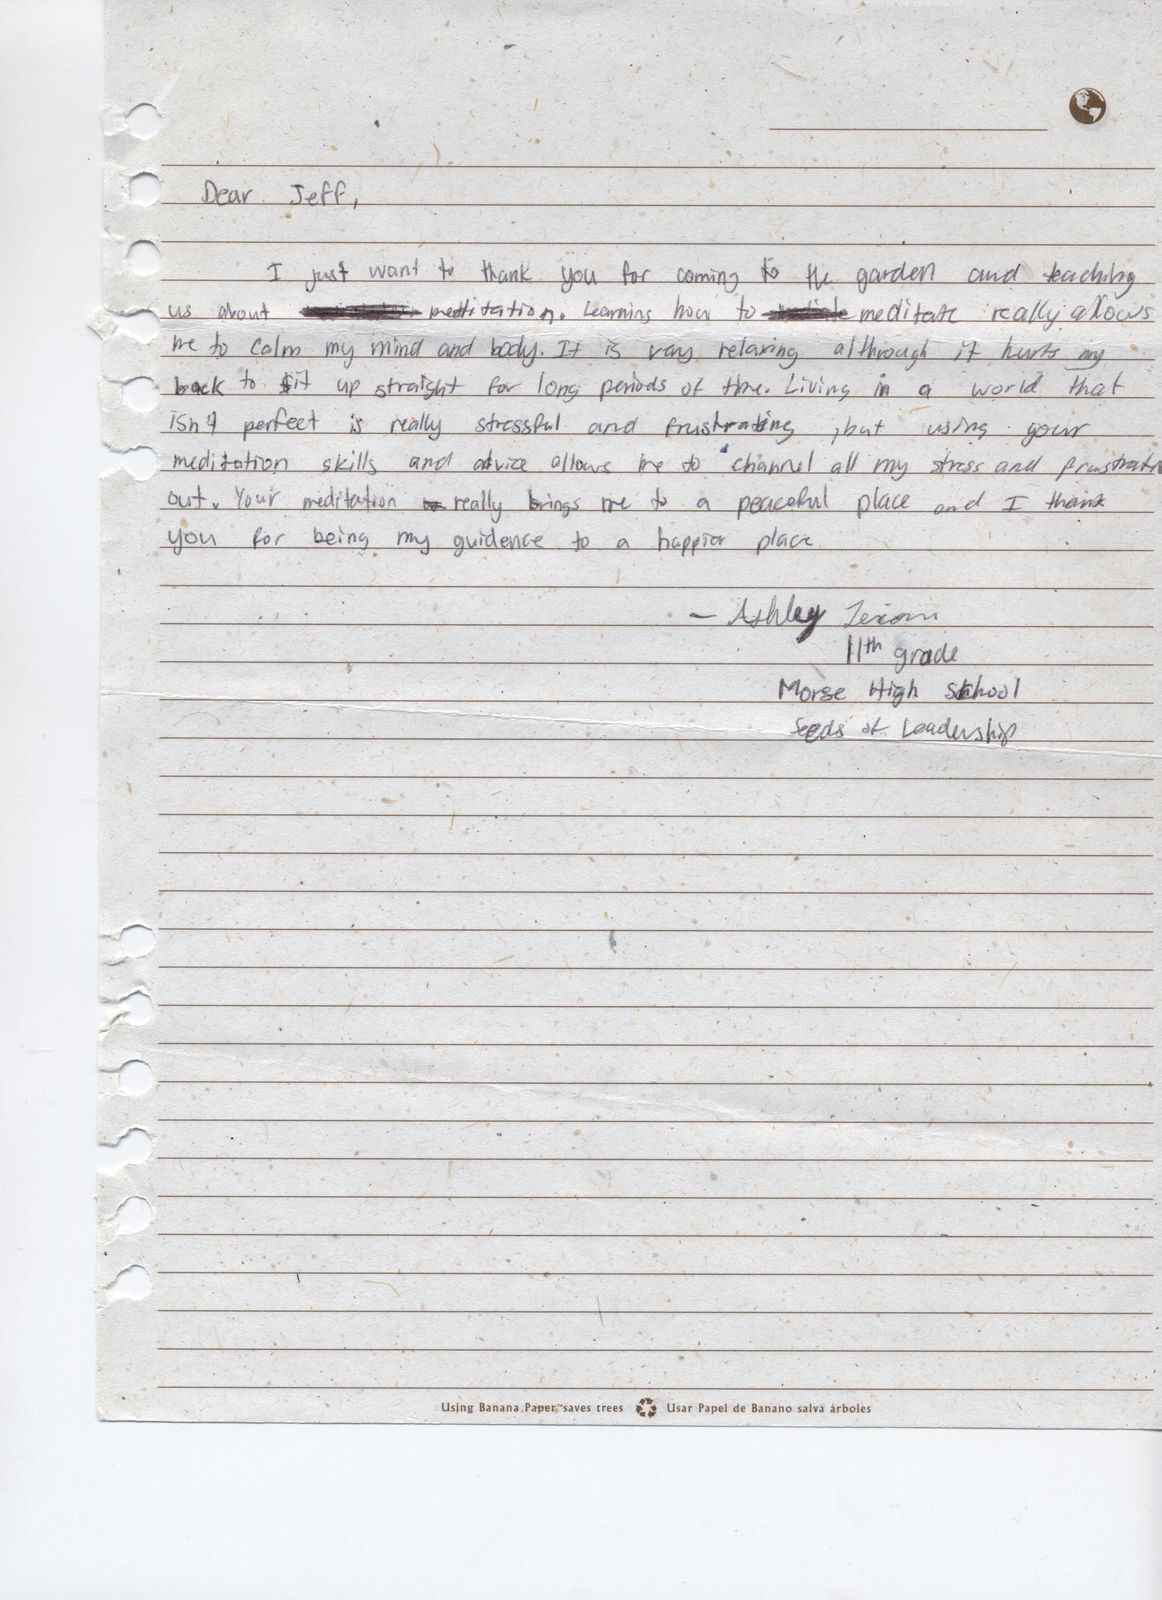 Dear Jeff,
I just want to thank you for coming to the garden and teaching
us about meditation. Learning how to meditate really allows
me to calm my mind and body. It is very relaxing althrough it hurts my
back to sit up straight for long periods of time. Living in a world that
isn't perfect is really stressful and frustrating, but using your
meditation skills and advice allows me to channel all my stress and frustratn
out. Your meditation really brings me to a peaceful place and I thank
you for being my guidence to a happier place
– Ashley
11th grade
Morse High School
Seeds of Leadership
Using Banana Paper™ saves trees Usar Papel de Banano salva árboles